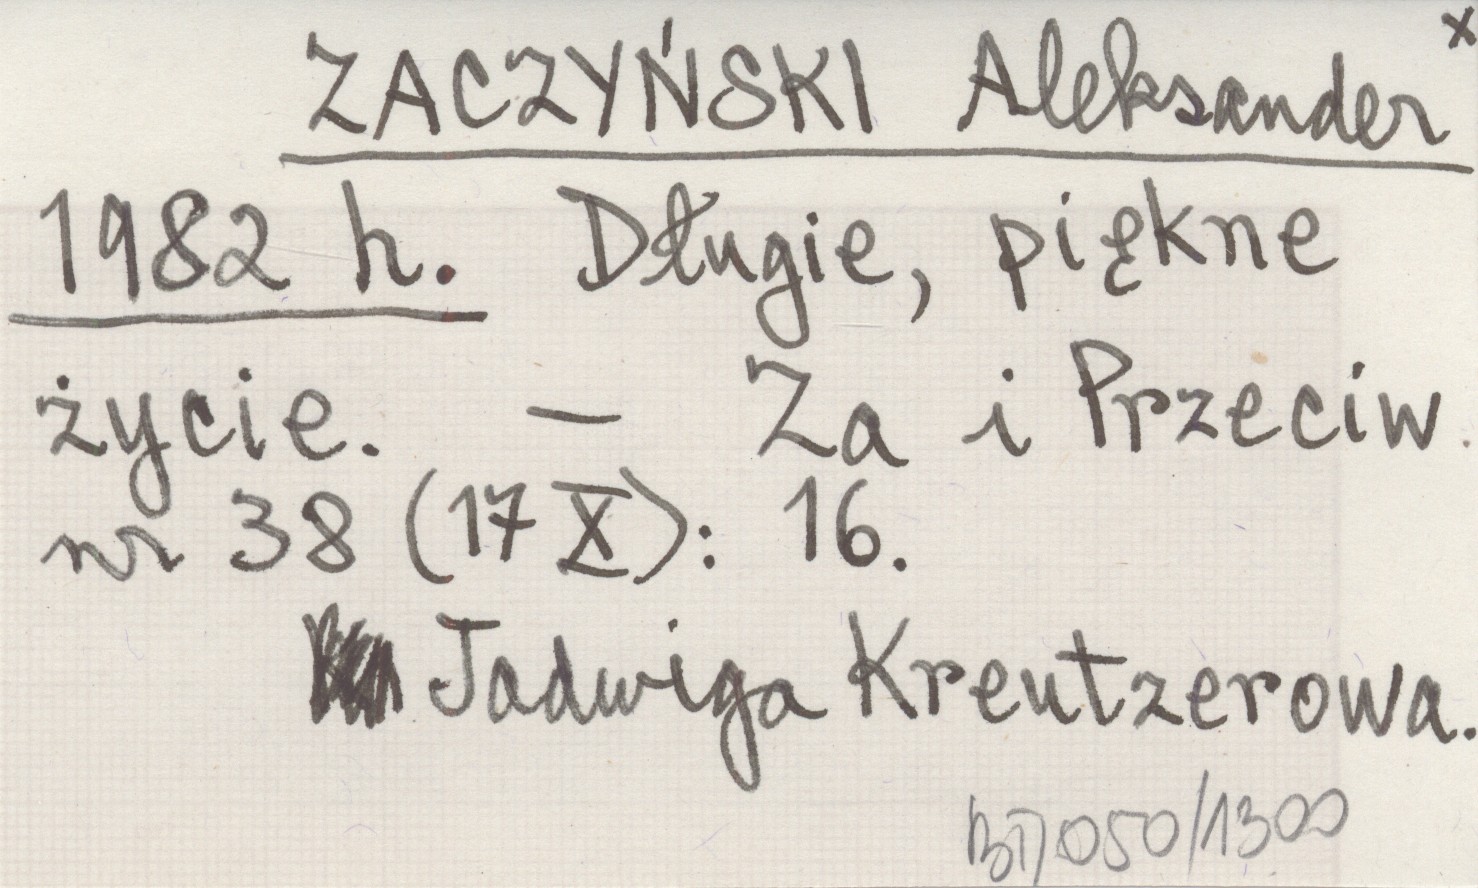 ZACZYŃSKI Aleksander x
1982 h. Długie, piękne
życie. — Za i Przeciw.
nr 38 (17 X): 16.
Jadwiga Kreutzerowa.
050/1300